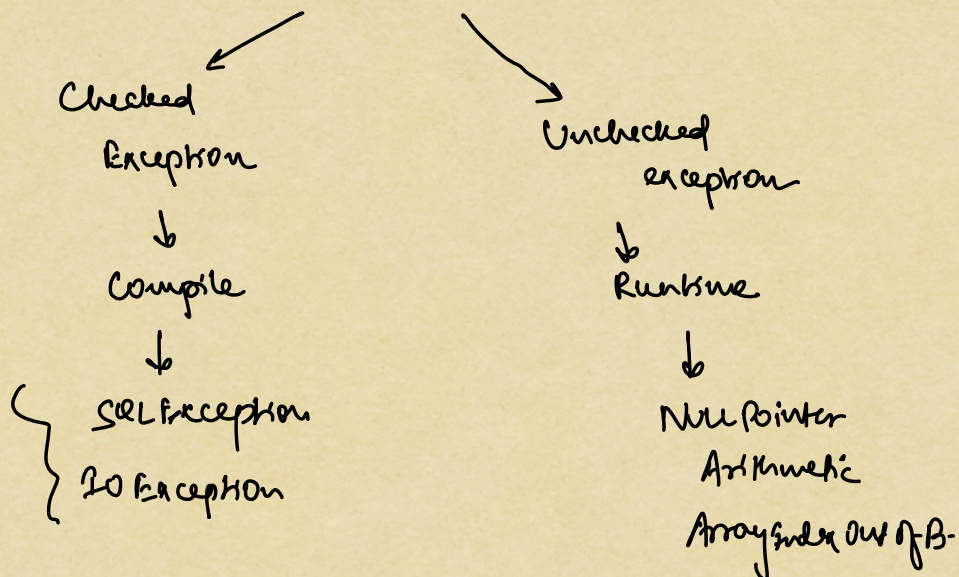 Checked
Exception
Compile
SQLException
IO Exception
Unchecked
exception
Runtime
Null Pointer
Arithmetic
Array Index Out of B-